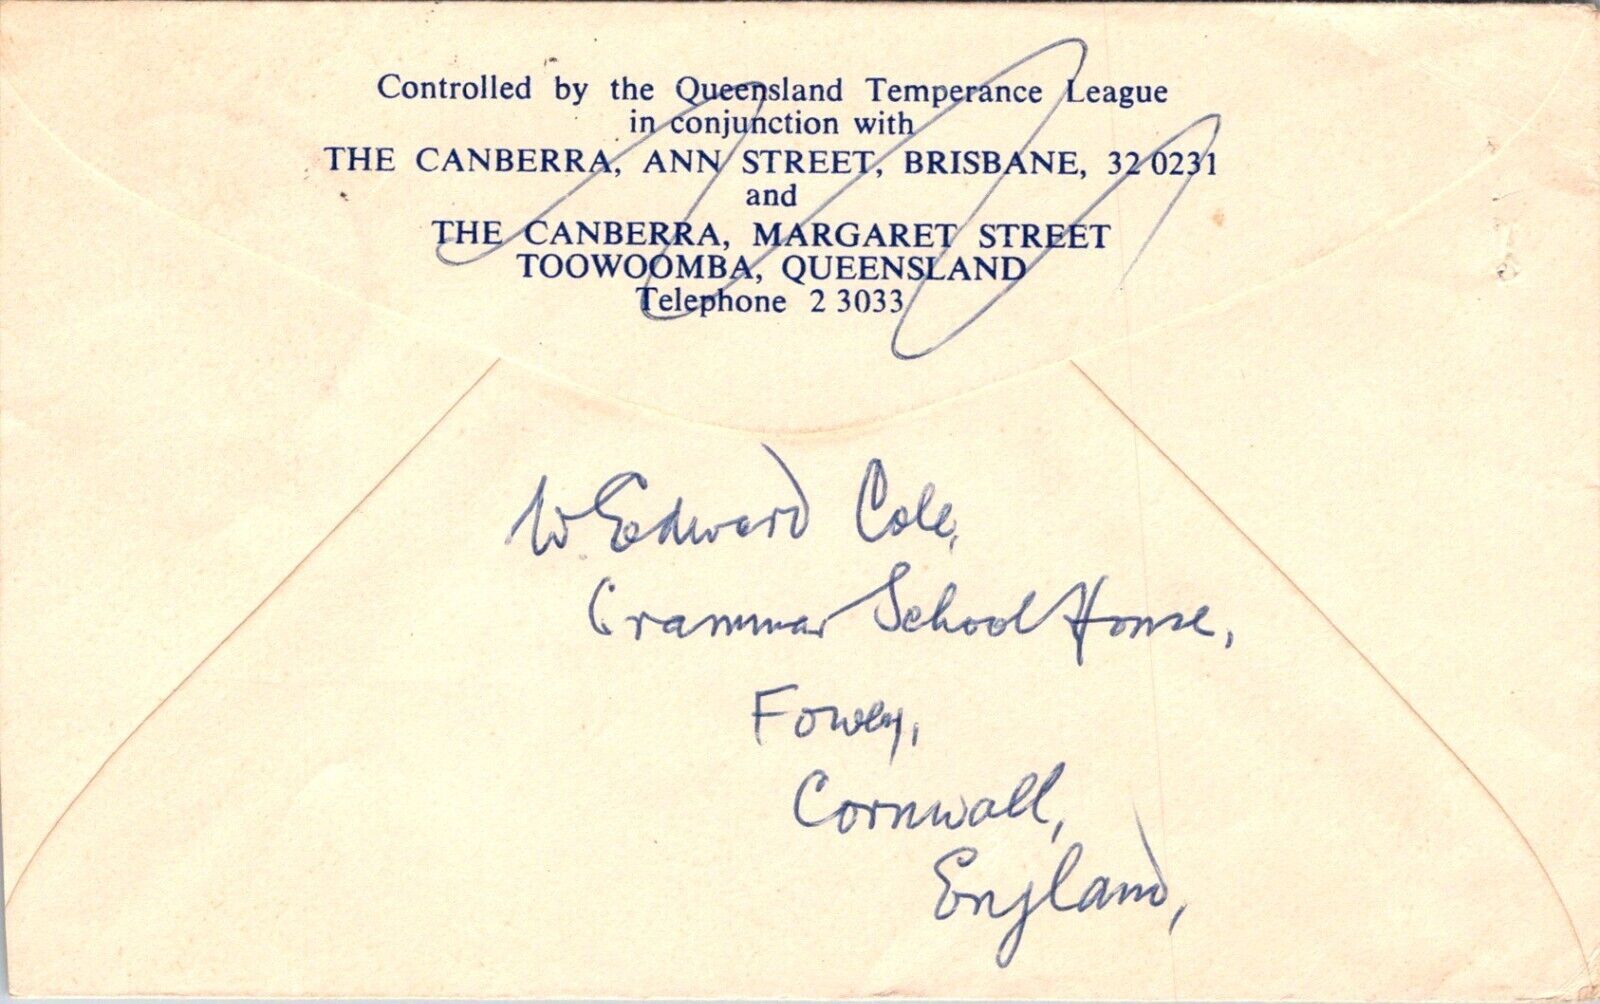 Controlled by the Queensland Temperance League
in conjunction with
THE CANBERRA, ANN STREET, BRISBANE, 32 0231
and
THE CANBERRA, MARGARET STREET
TOOWOOMBA, QUEENSLAND
Telephone 2 3033
W Edward Cole,
Grammar School House,
Fowey,
Cornwall,
England,